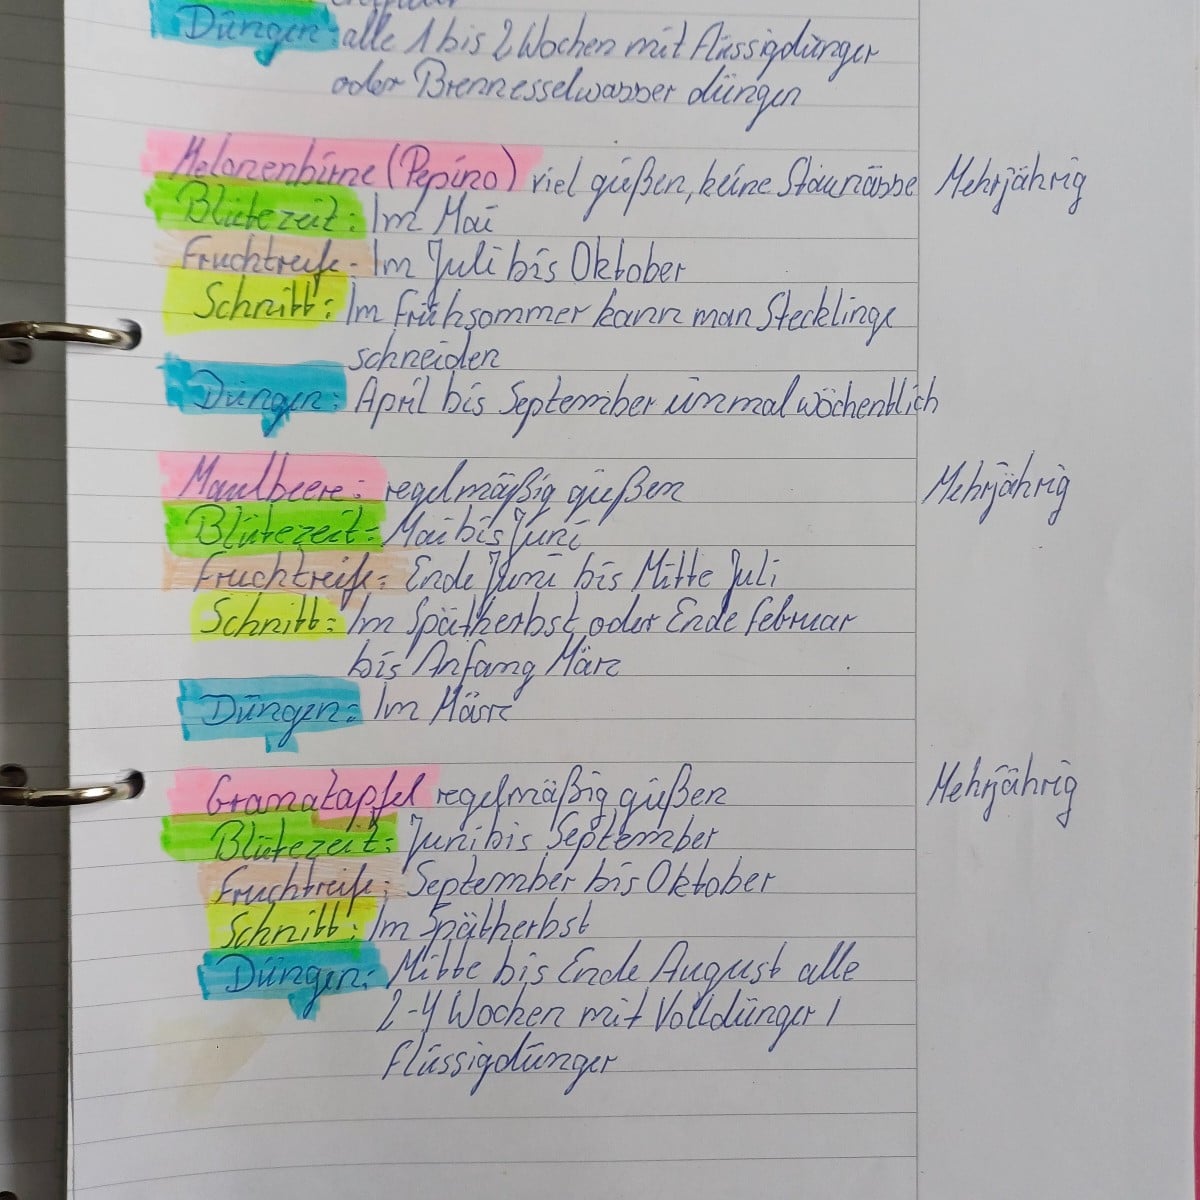 Düngen: alle 1 bis 2 Wochen mit Flüssigdünger
oder Brennesselwasser düngen
Melonenbirne (Pepino) viel gießen, keine Staunässe Mehrjährig
Blütezeit: Im Mai
Fruchtreife: Im Juli bis Oktober
Schnitt: Im Frühsommer kann man Stecklinge
schneiden
Düngen: April bis September einmal wöchentlich
Maulbeere: regelmäßig gießen Mehrjährig
Blütezeit: Mai bis Juni
Fruchtreife: Ende Juni bis Mitte Juli
Schnitt: Im Spätherbst oder Ende Februar
bis Anfang März
Düngen: Im März
Granatapfel regelmäßig gießen Mehrjährig
Blütezeit: Juni bis September
Fruchtreife: September bis Oktober
Schnitt: Im Spätherbst
Düngen: Mitte bis Ende August alle
2-4 Wochen mit Volldünger /
Flüssigdünger